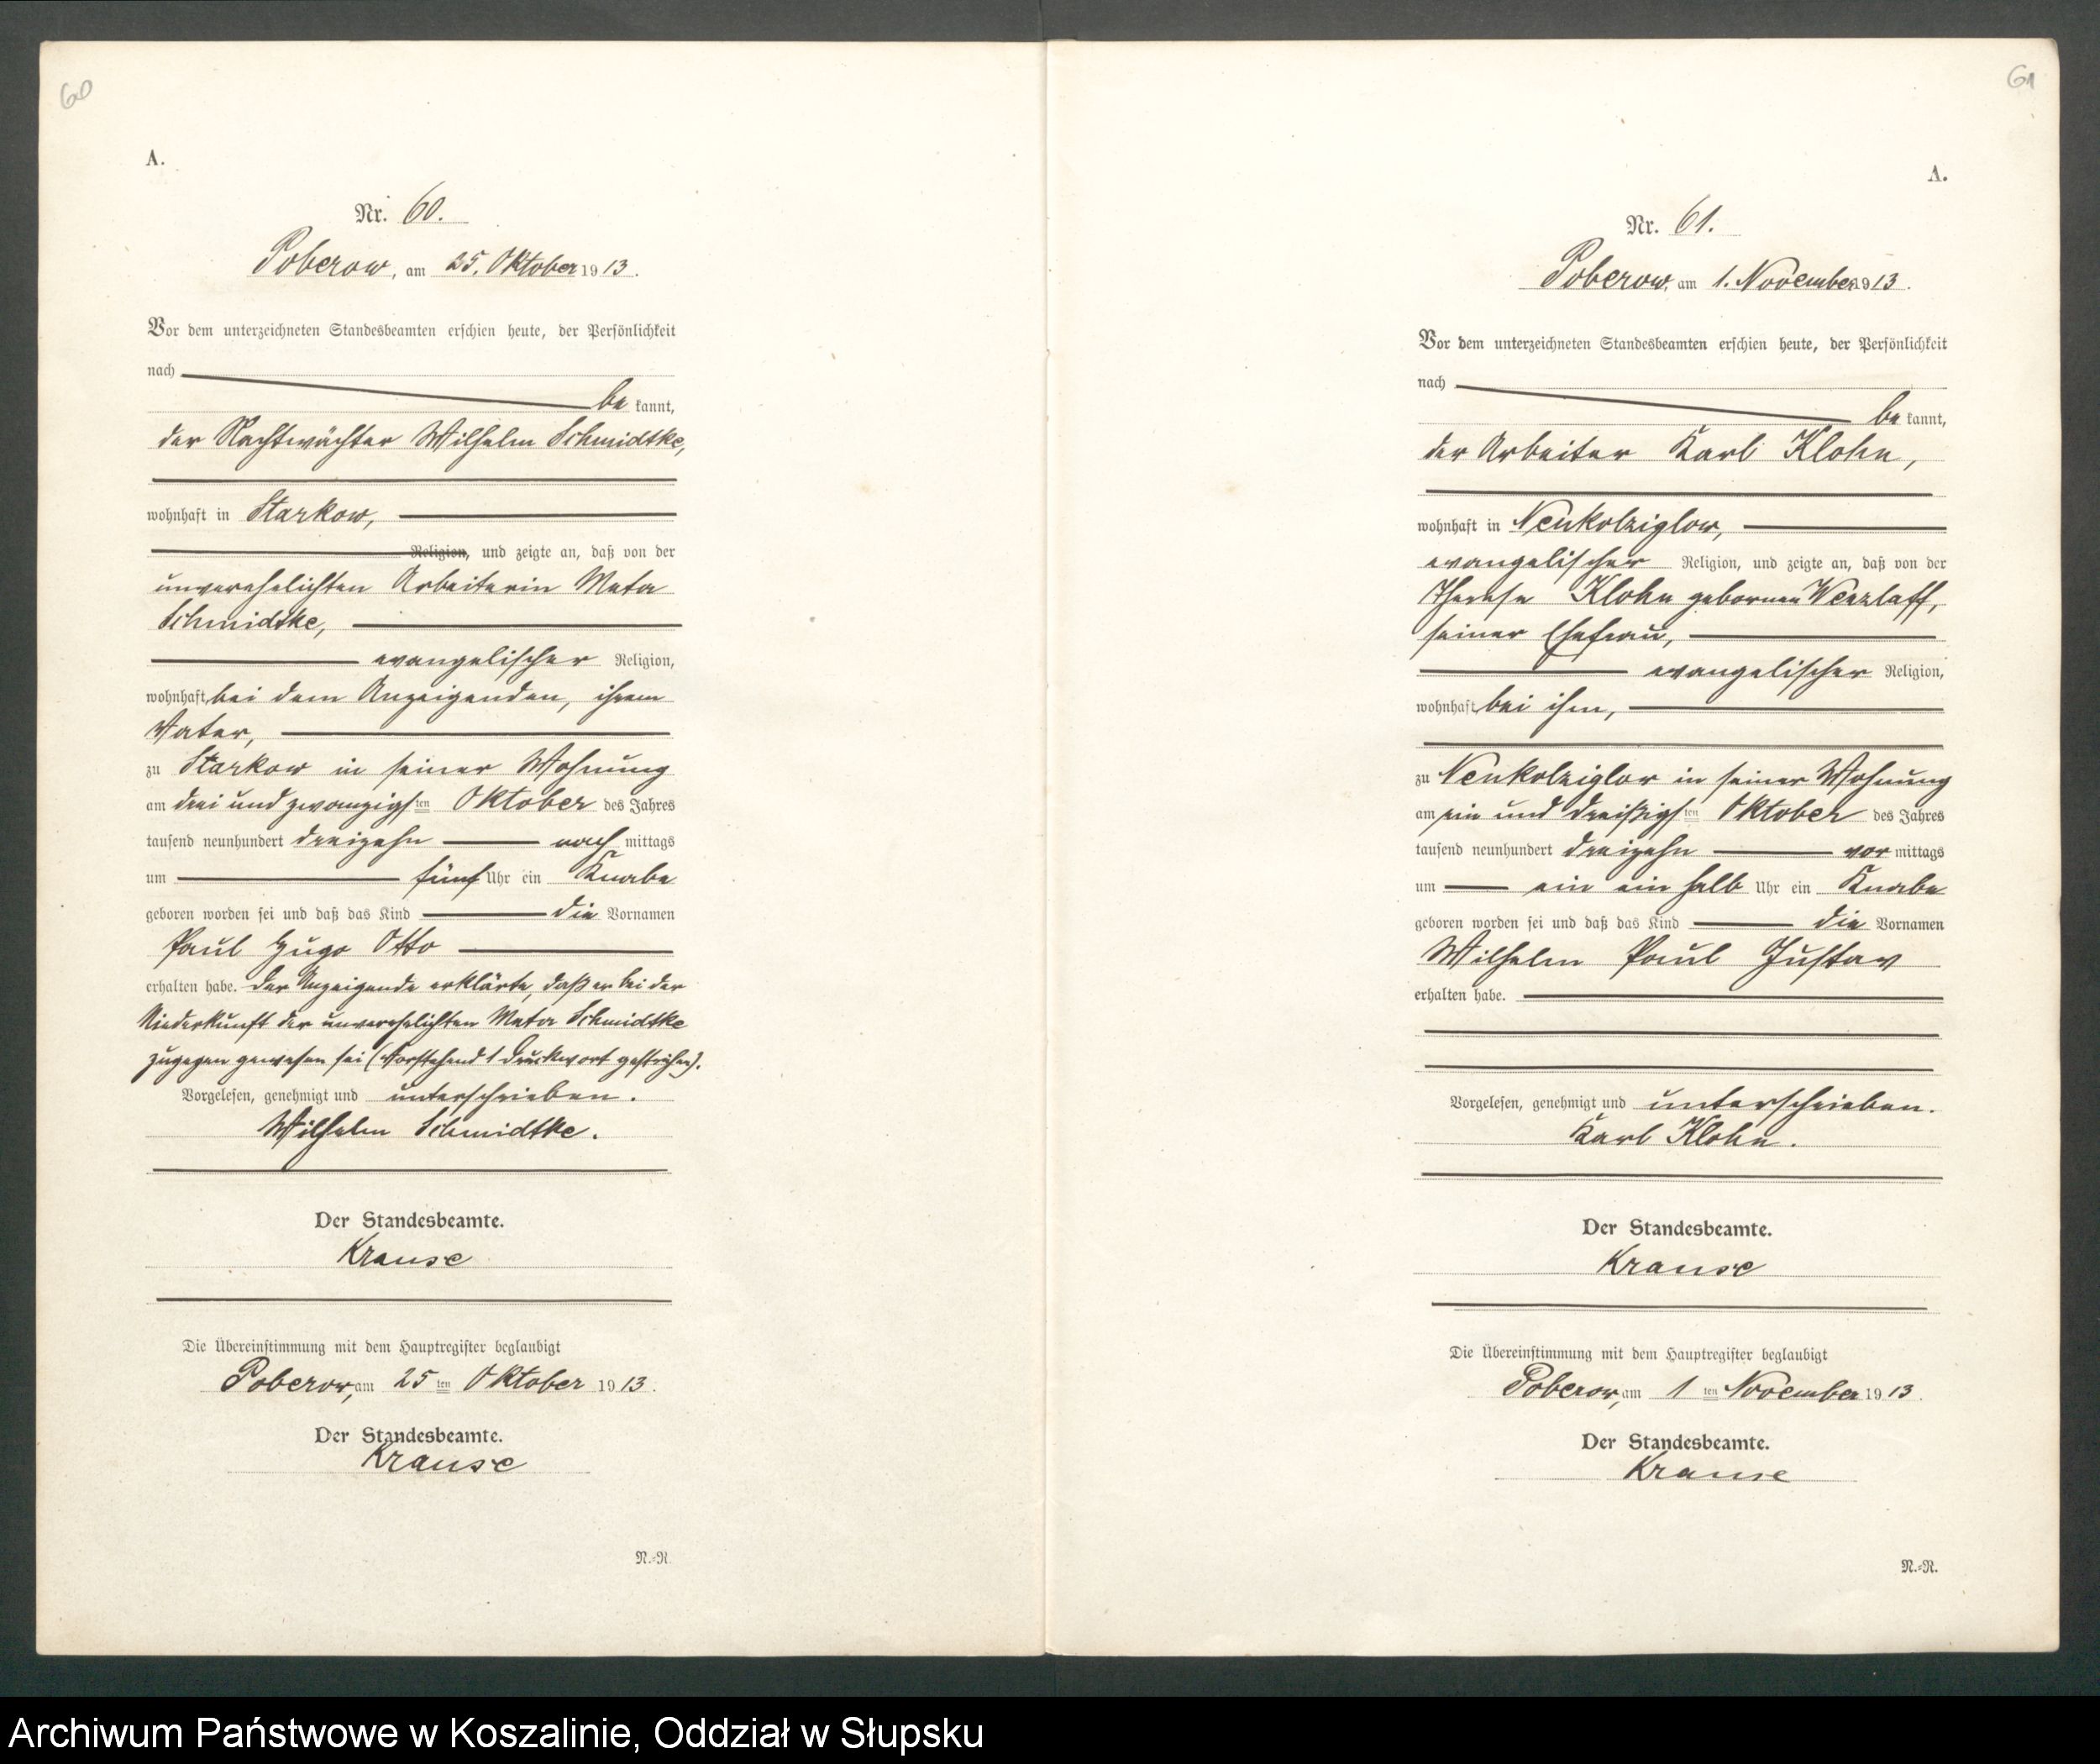 60
A.
Nr. 60.
Poberow, am 25. Oktober 1913.
Vor dem unterzeichneten Standesbeamten erschien heute, der Persönlichkeit
nach
be kannt,
der Nachtwächter Wilhelm Schmidtke,
wohnhaft in Starkow,
Religion, und zeigte an, daß von der
unverehelichten Arbeiterin Meta
Schmidtke,
evangelischer Religion,
wohnhaft bei dem Anzeigenden, ihrem
Vater,
zu Starkow in seiner Wohnung
am drei und zwanzigsten Oktober des Jahres
tausend neunhundert dreizehn nachmittags
um fünf Uhr ein Knabe
geboren worden sei und daß das Kind die Vornamen
Paul Hugo Otto
erhalten habe. Der Anzeigende erklärte, daß er bei der
Niederkunft der unverehelichten Meta Schmidtke
zugegen gewesen sei (Vorstehend 1 Druckwort gestrichen).
Vorgelesen, genehmigt und unterschrieben.
Wilhelm Schmidtke.
Der Standesbeamte.
Krause
Die Übereinstimmung mit dem Hauptregister beglaubigt
Poberow, am 25ten Oktober 1913.
Der Standesbeamte.
Krause
N.=R.
61
A.
Nr. 61.
Poberow, am 1. November 1913.
Vor dem unterzeichneten Standesbeamten erschien heute, der Persönlichkeit
nach
be kannt,
der Arbeiter Karl Klohn,
wohnhaft in Neukolziglow,
evangelischer Religion, und zeigte an, daß von der
Therese Klohn gebornen Wenzlaff,
seiner Ehefrau,
evangelischer Religion,
wohnhaft bei ihm,
zu Neukolziglow in seiner Wohnung
am ein und dreißigsten Oktober des Jahres
tausend neunhundert dreizehn vormittags
um ein ein halb Uhr ein Knabe
geboren worden sei und daß das Kind die Vornamen
Wilhelm Paul Gustav
erhalten habe.
Vorgelesen, genehmigt und unterschrieben.
Karl Klohn.
Der Standesbeamte.
Krause
Die Übereinstimmung mit dem Hauptregister beglaubigt
Poberow, am 1ten November 1913.
Der Standesbeamte.
Krause
N.=R.
Archiwum Państwowe w Koszalinie, Oddział w Słupsku